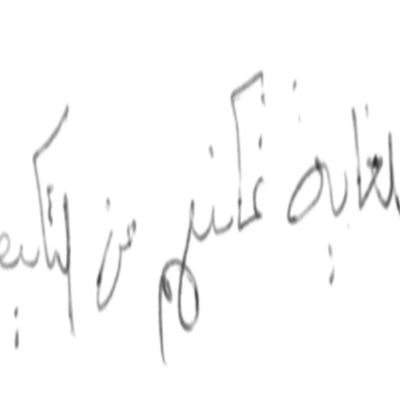 لغاية تمكنهم من التكيف